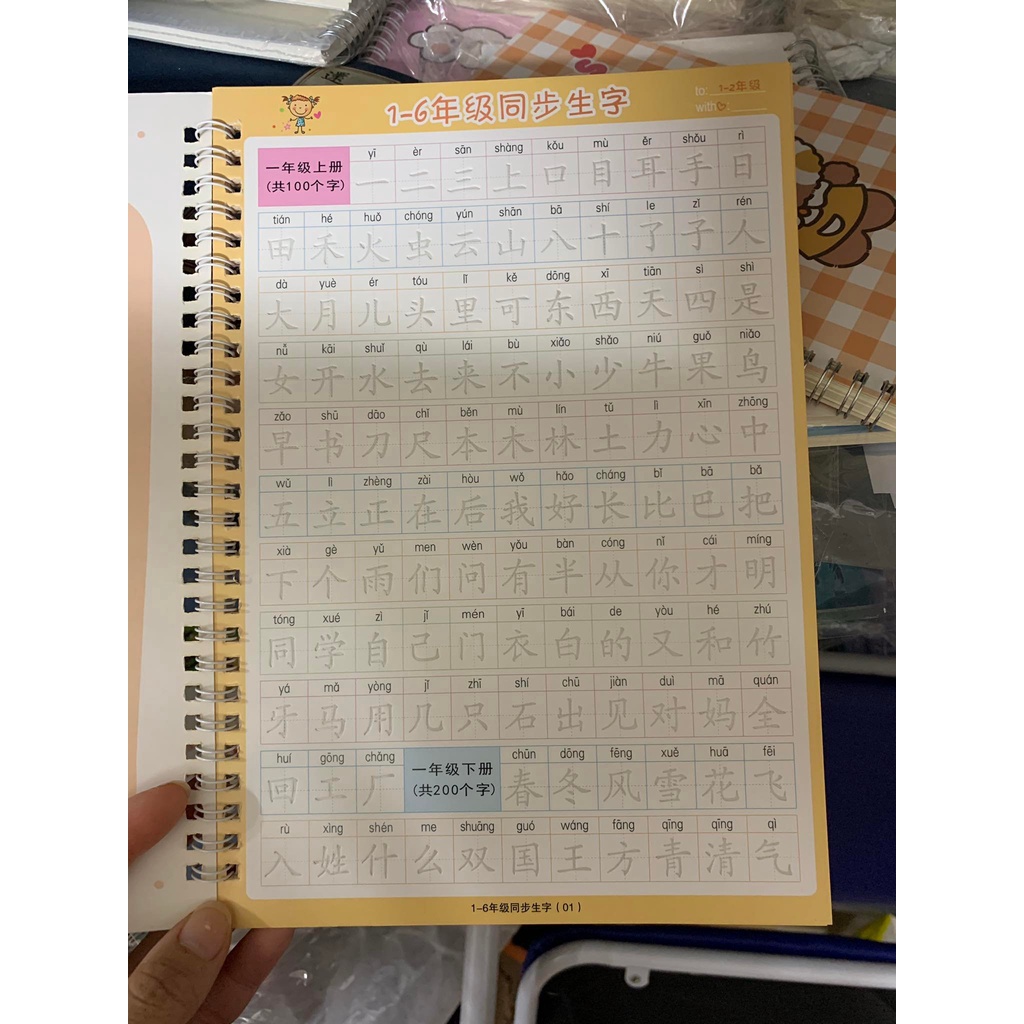 1-6年级同步生字
to: 1-2年级
with:
yī èr sān shàng kǒu mù ěr shǒu rì
一年级上册
(共100个字)
一 二 三 上 口 目 耳 手 日
tián hé huǒ chóng yún shān bā shí le zǐ rén
田 禾 火 虫 云 山 八 十 了 子 人
dà yuè ér tóu lǐ kě dōng xī tiān sì shì
大 月 儿 头 里 可 东 西 天 四 是
nǚ kāi shuǐ qù lái bù xiǎo shǎo niú guǒ niǎo
女 开 水 去 来 不 小 少 牛 果 鸟
zǎo shū dāo chǐ běn mù lín tǔ lì xīn zhōng
早 书 刀 尺 本 木 林 土 力 心 中
wǔ lì zhèng zài hòu wǒ hǎo cháng bǐ bā bǎ
五 立 正 在 后 我 好 长 比 巴 把
xià gè yǔ men wèn yǒu bàn cóng nǐ cái míng
下 个 雨 们 问 有 半 从 你 才 明
tóng xué zì jǐ mén yī bái de yòu hé zhú
同 学 自 己 门 衣 白 的 又 和 竹
yá mǎ yòng jǐ zhī shí chū jiàn duì mā quán
牙 马 用 几 只 石 出 见 对 妈 全
huí gōng chǎng chūn dōng fēng xuě huā fēi
回 工 厂
一年级下册
(共200个字)
春 冬 风 雪 花 飞
rù xìng shén me shuāng guó wáng fāng qīng qīng qì
入 姓 什 么 双 国 王 方 青 清 气
1-6年级同步生字(01)